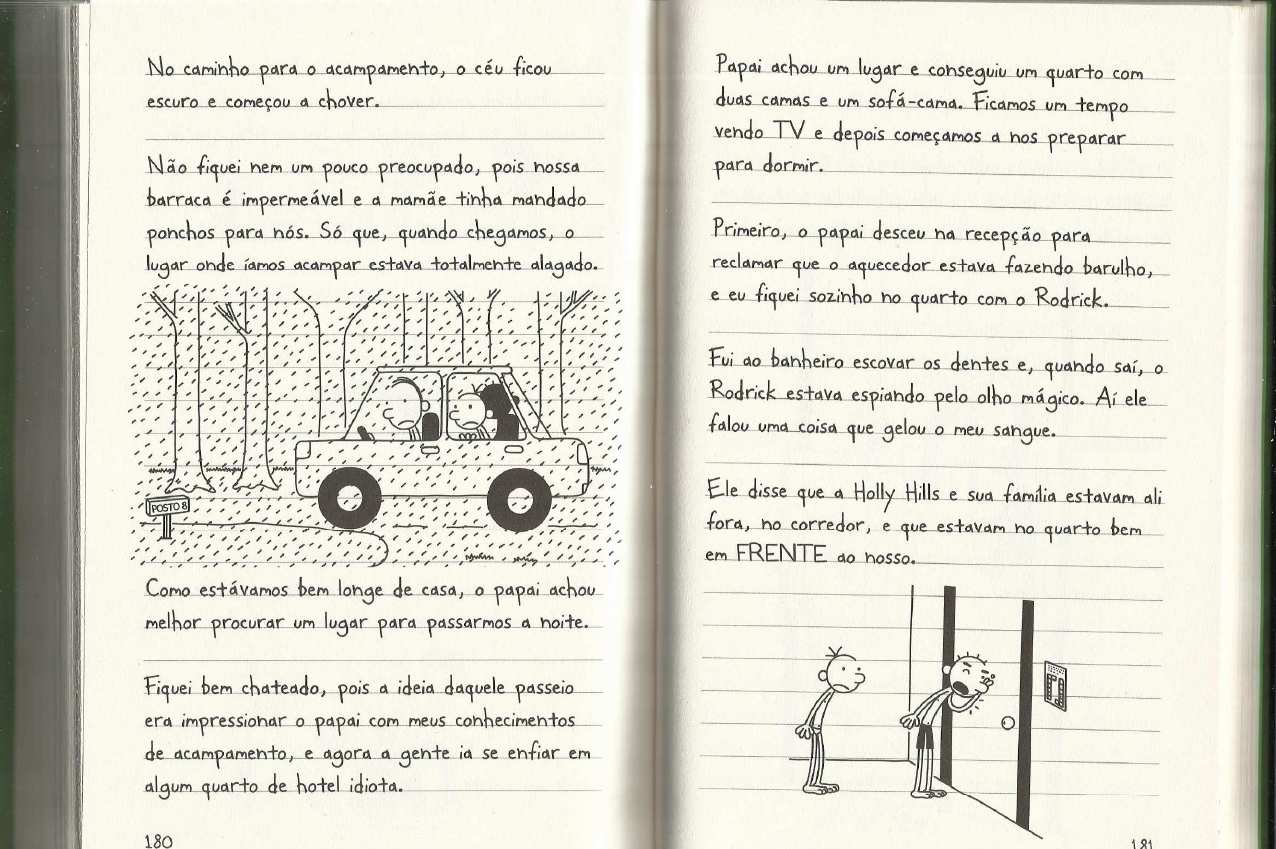 No caminho para o acampamento, o céu ficou
escuro e começou a chover.
Não fiquei nem um pouco preocupado, pois nossa
barraca é impermeável e a mamãe tinha mandado
ponchos para nós. Só que, quando chegamos, o
lugar onde íamos acampar estava totalmente alagado.
POSTO 8
Como estávamos bem longe de casa, o papai achou
melhor procurar um lugar para passarmos a noite.
Fiquei bem chateado, pois a ideia daquele passeio
era impressionar o papai com meus conhecimentos
de acampamento, e agora a gente ia se enfiar em
algum quarto de hotel idiota.
180
Papai achou um lugar e conseguiu um quarto com
duas camas e um sofá-cama. Ficamos um tempo
vendo TV e depois começamos a nos preparar
para dormir.
Primeiro, o papai desceu na recepção para
reclamar que o aquecedor estava fazendo barulho,
e eu fiquei sozinho no quarto com o Rodrick.
Fui ao banheiro escovar os dentes e, quando saí, o
Rodrick estava espiando pelo olho mágico. Aí ele
falou uma coisa que gelou o meu sangue.
Ele disse que a Holly Hills e sua família estavam ali
fora, no corredor, e que estavam no quarto bem
em FRENTE ao nosso.
181